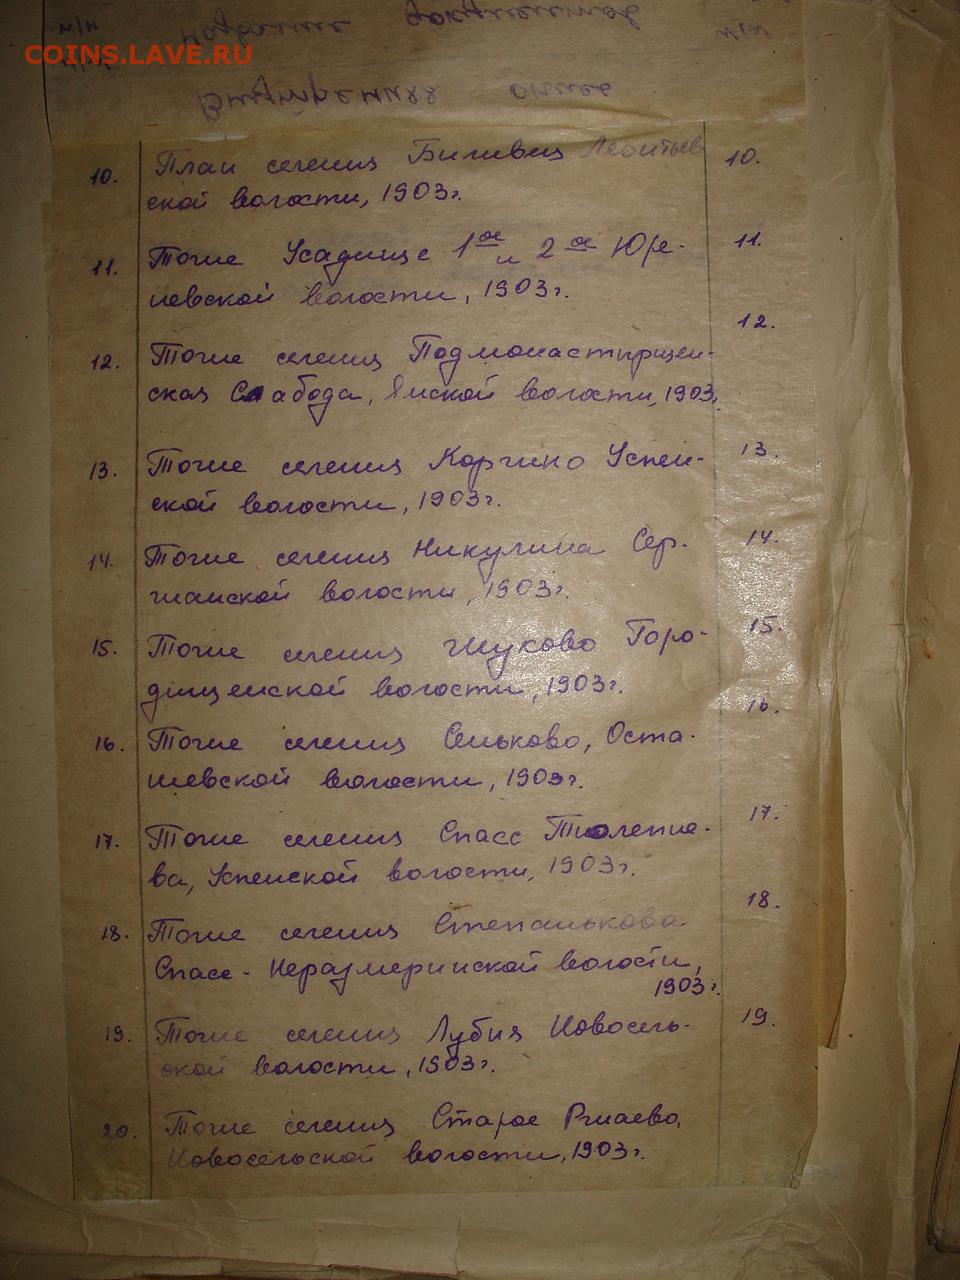 COINS.LAVE.RU
Внутренняя опись
10. План селения Биливиц Леонтьев 10.
ской волости, 1903 г.
11. То же Усадище 1ое и 2ое Юре- 11.
невской волости, 1903 г.
12. То же селения Подмонастырщен- 12.
ская Слабода, Ямской волости, 1903.
13. То же селения Корчино Успен- 13.
ской волости, 1903 г.
14. То же селения Никулина Сер- 14.
гианской волости, 1903 г.
15. То же селения Жуково Горо- 15.
дищенской волости, 1903 г.
16. То же селения Сеньково, Оста- 16.
шевской волости, 1903 г.
17. То же селения Спасс 17.
ва, Успенской волости, 1903 г.
18. То же селения Степанькова 18.
Спасс- волости,
1903 г.
19. То же селения Лубня Новосель- 19.
ской волости, 1903 г.
20. То же селения Старое Ржаево,
Новосельской волости, 1903 г.